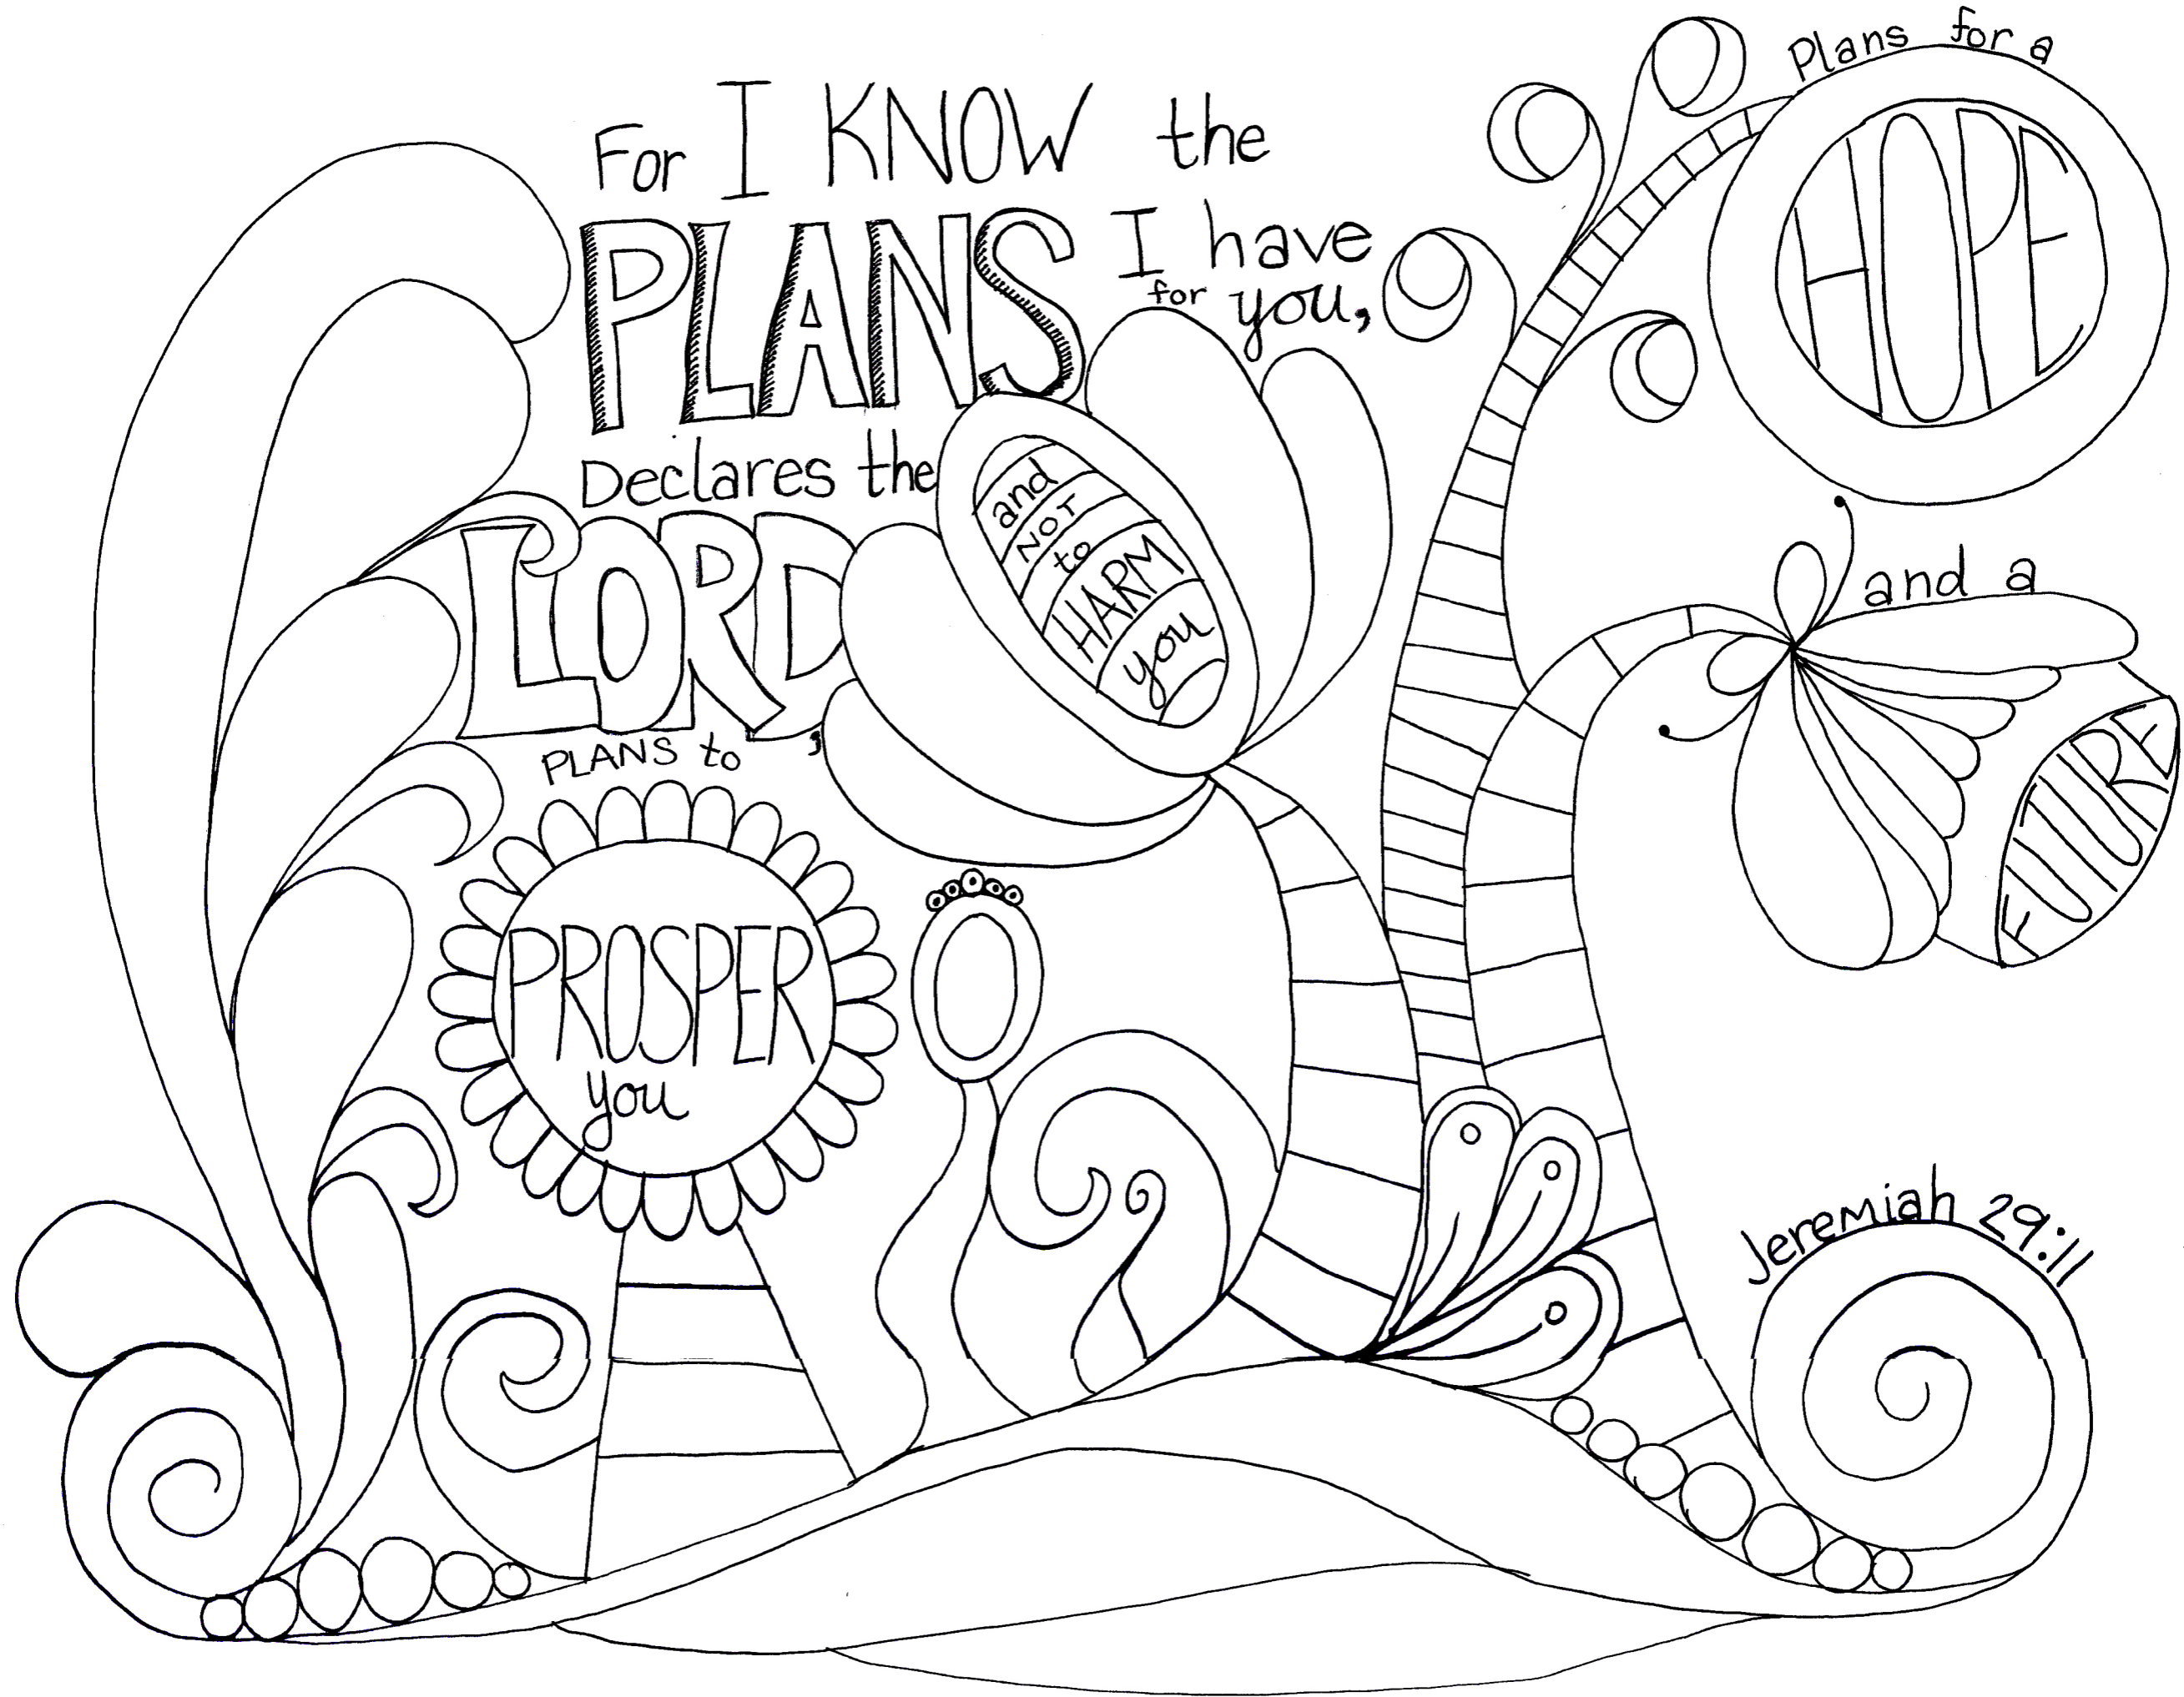 For I KNOW the
PLANS I have
for you,
Declares the
LORD,
PLANS to
PROSPER
you
and
NOT
to
HARM
you
Plans for a
HOPE
and a
FUTURE
Jeremiah 29:11